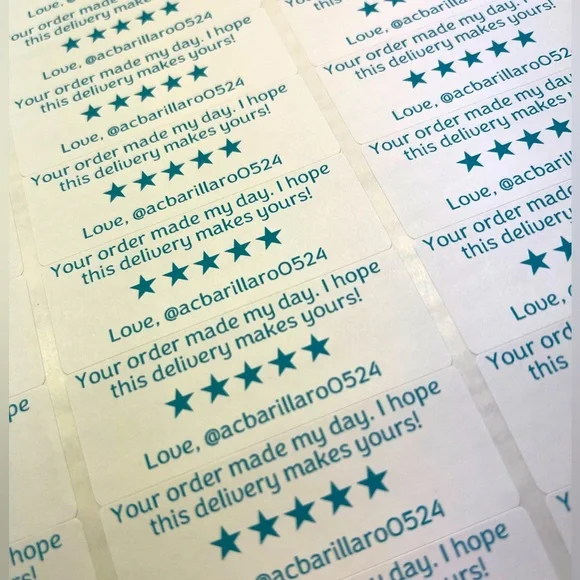 Love, @
Your order made
this delivery makes yours!
★★★★★
Love, @acbarillaro0524
Your order made my day. I hope
this delivery makes yours!
★★★★★
Love, @acbarillaro0524
Your order made my day. I hope
this delivery makes yours!
★★★★★
Love, @acbarillaro0524
Your order made my day. I hope
this delivery makes yours!
★★★★★
Love, @acbarillaro0524
Your order made my day. I hope
this delivery makes yours!
★★★★★
Love, @acbarillaro0524
Your order made my day. I hope
this delivery makes yours!
★★★★★
@acbarillaro0524
day. I hope
yours!
hope
Love, @acbarillaro0524
Your order made my day. I hope
this delivery makes yours!
★★★★★
Love, @acbarillaro0524
Your order made my day.
this delivery makes
★★★★
Love, @acbarill
Your order made
this delivery
★★
Love,
Your
this